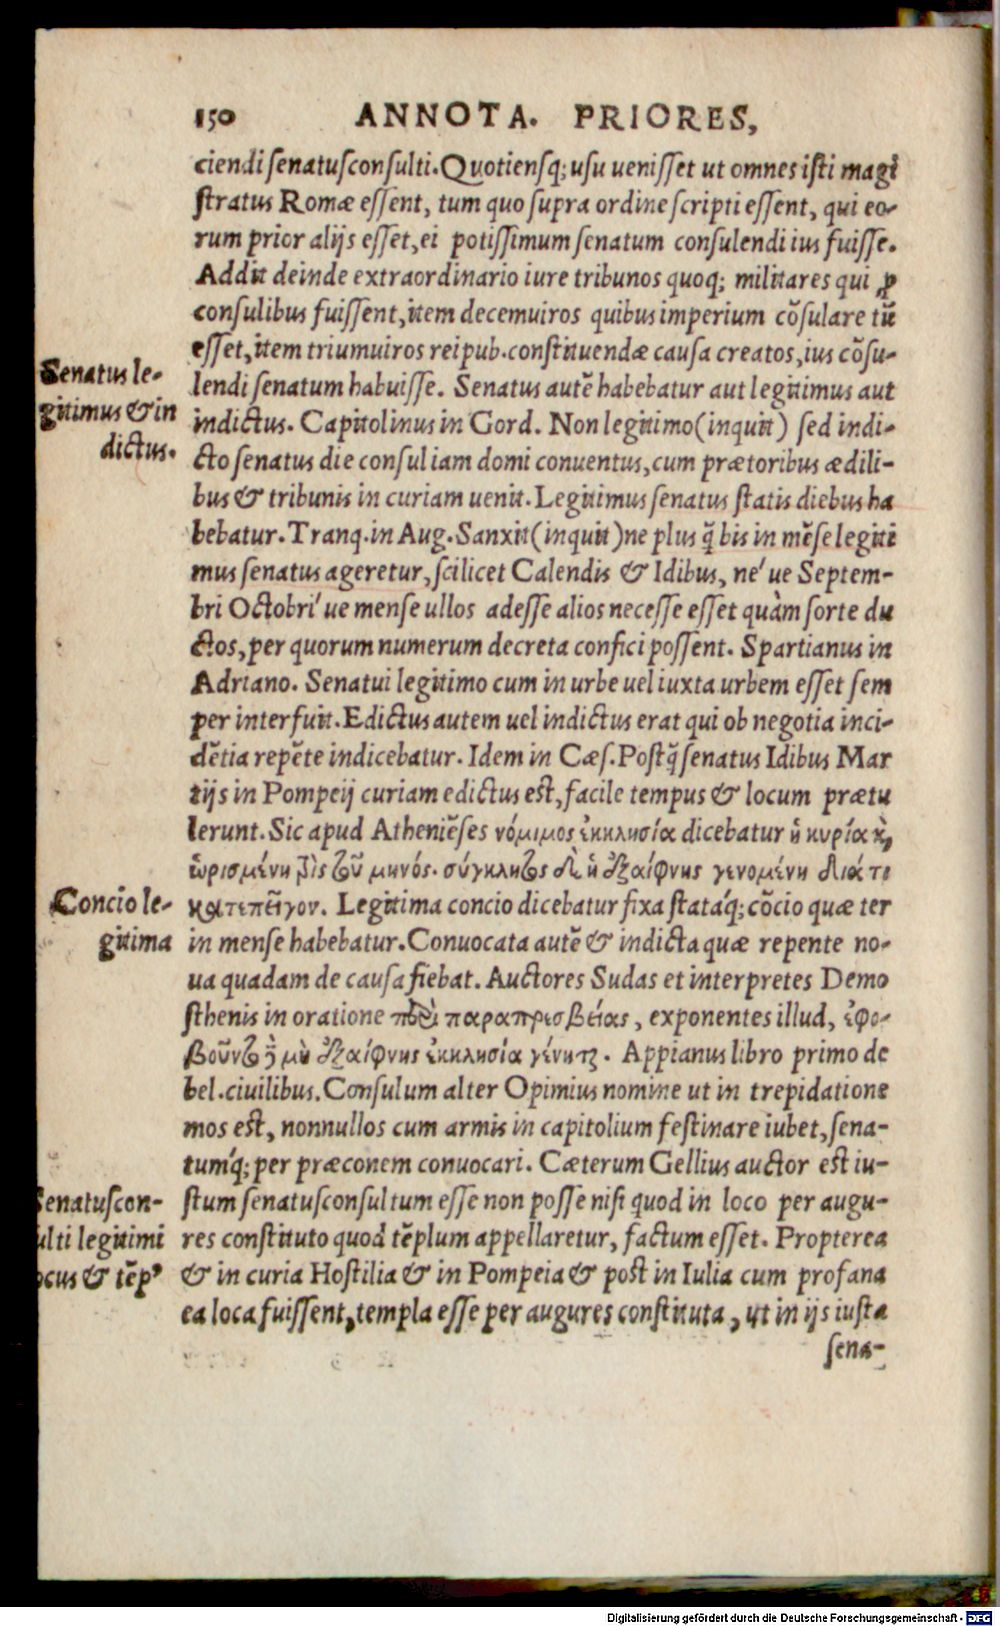 150 ANNOTA. PRIORES,
ciendi senatusconsulti. Quotiensq; usu uenisset ut omnes isti magi
stratus Romæ essent, tum quo supra ordine scripti essent, qui eo-
rum prior alijs esset, ei potissimum senatum consulendi ius fuisse.
Addit deinde extraordinario iure tribunos quoq; militares qui ꝓ
consulibus fuissent, item decemuiros quibus imperium cõsulare tũ
esset, item triumuiros reipub. constituendæ causa creatos, ius cõsu-
lendi senatum habuisse. Senatus autẽ habebatur aut legitimus aut
indictus. Capitolinus in Gord. Non legitimo (inquit) sed indi-
cto senatus die consul iam domi conuentus, cum prætoribus ædili-
bus & tribunis in curiam uenit. Legitimus senatus statis diebus ha
bebatur. Tranq. in Aug. Sanxit (inquit) ne plus q̃ bis in mẽse legiti
mus senatus ageretur, scilicet Calendis & Idibus, ne´ue Septem-
bri Octobri´ue mense ullos adesse alios necesse esset quàm sorte du
ctos, per quorum numerum decreta confici possent. Spartianus in
Adriano. Senatui legitimo cum in urbe uel iuxta urbem esset sem
per interfuit. Edictus autem uel indictus erat qui ob negotia inci-
dẽtia repẽte indicebatur. Idem in Cæs. Postq̃ senatus Idibus Mar
tijs in Pompeij curiam edictus est, facile tempus & locum prætu
lerunt. Sic apud Atheniẽses νόμιμος ἐκκλησία dicebatur ἡ κυρία κὶ
ὡρισμένη βὶς τοῦ μηνός. σύγκλητος δὲ ἡ ἐξαίφνης γενομένη διά τι
κατεπεῖγον. Legitima concio dicebatur fixa statáq; cõcio quæ ter
in mense habebatur. Conuocata autẽ & indicta quæ repente no-
ua quadam de causa fiebat. Auctores Sudas et interpretes Demo
sthenis in oratione περὶ παραπρεσβείας, exponentes illud, ἐφο-
βοῦντο ἢ μὴ ἐξαίφνης ἐκκλησία γένηται. Appianus libro primo de
bel. ciuilibus. Consulum alter Opimius nomine ut in trepidatione
mos est, nonnullos cum armis in capitolium festinare iubet, sena-
tum´q; per præconem conuocari. Cæterum Gellius auctor est iu-
stum senatusconsultum esse non posse nisi quod in loco per augu-
res constituto quod tẽplum appellaretur, factum esset. Propterea
& in curia Hostilia & in Pompeia & post in Iulia cum profana
ea loca fuissent, templa esse per augures constituta, ut in ijs iusta
sena-
Senatus le-
gitimus & in
dictus.
Concio le-
gitima
Senatuscon-
ulti legitimi
ocus & tẽpꝰ
Digitalisierung gefördert durch die Deutsche Forschungsgemeinschaft - DFG